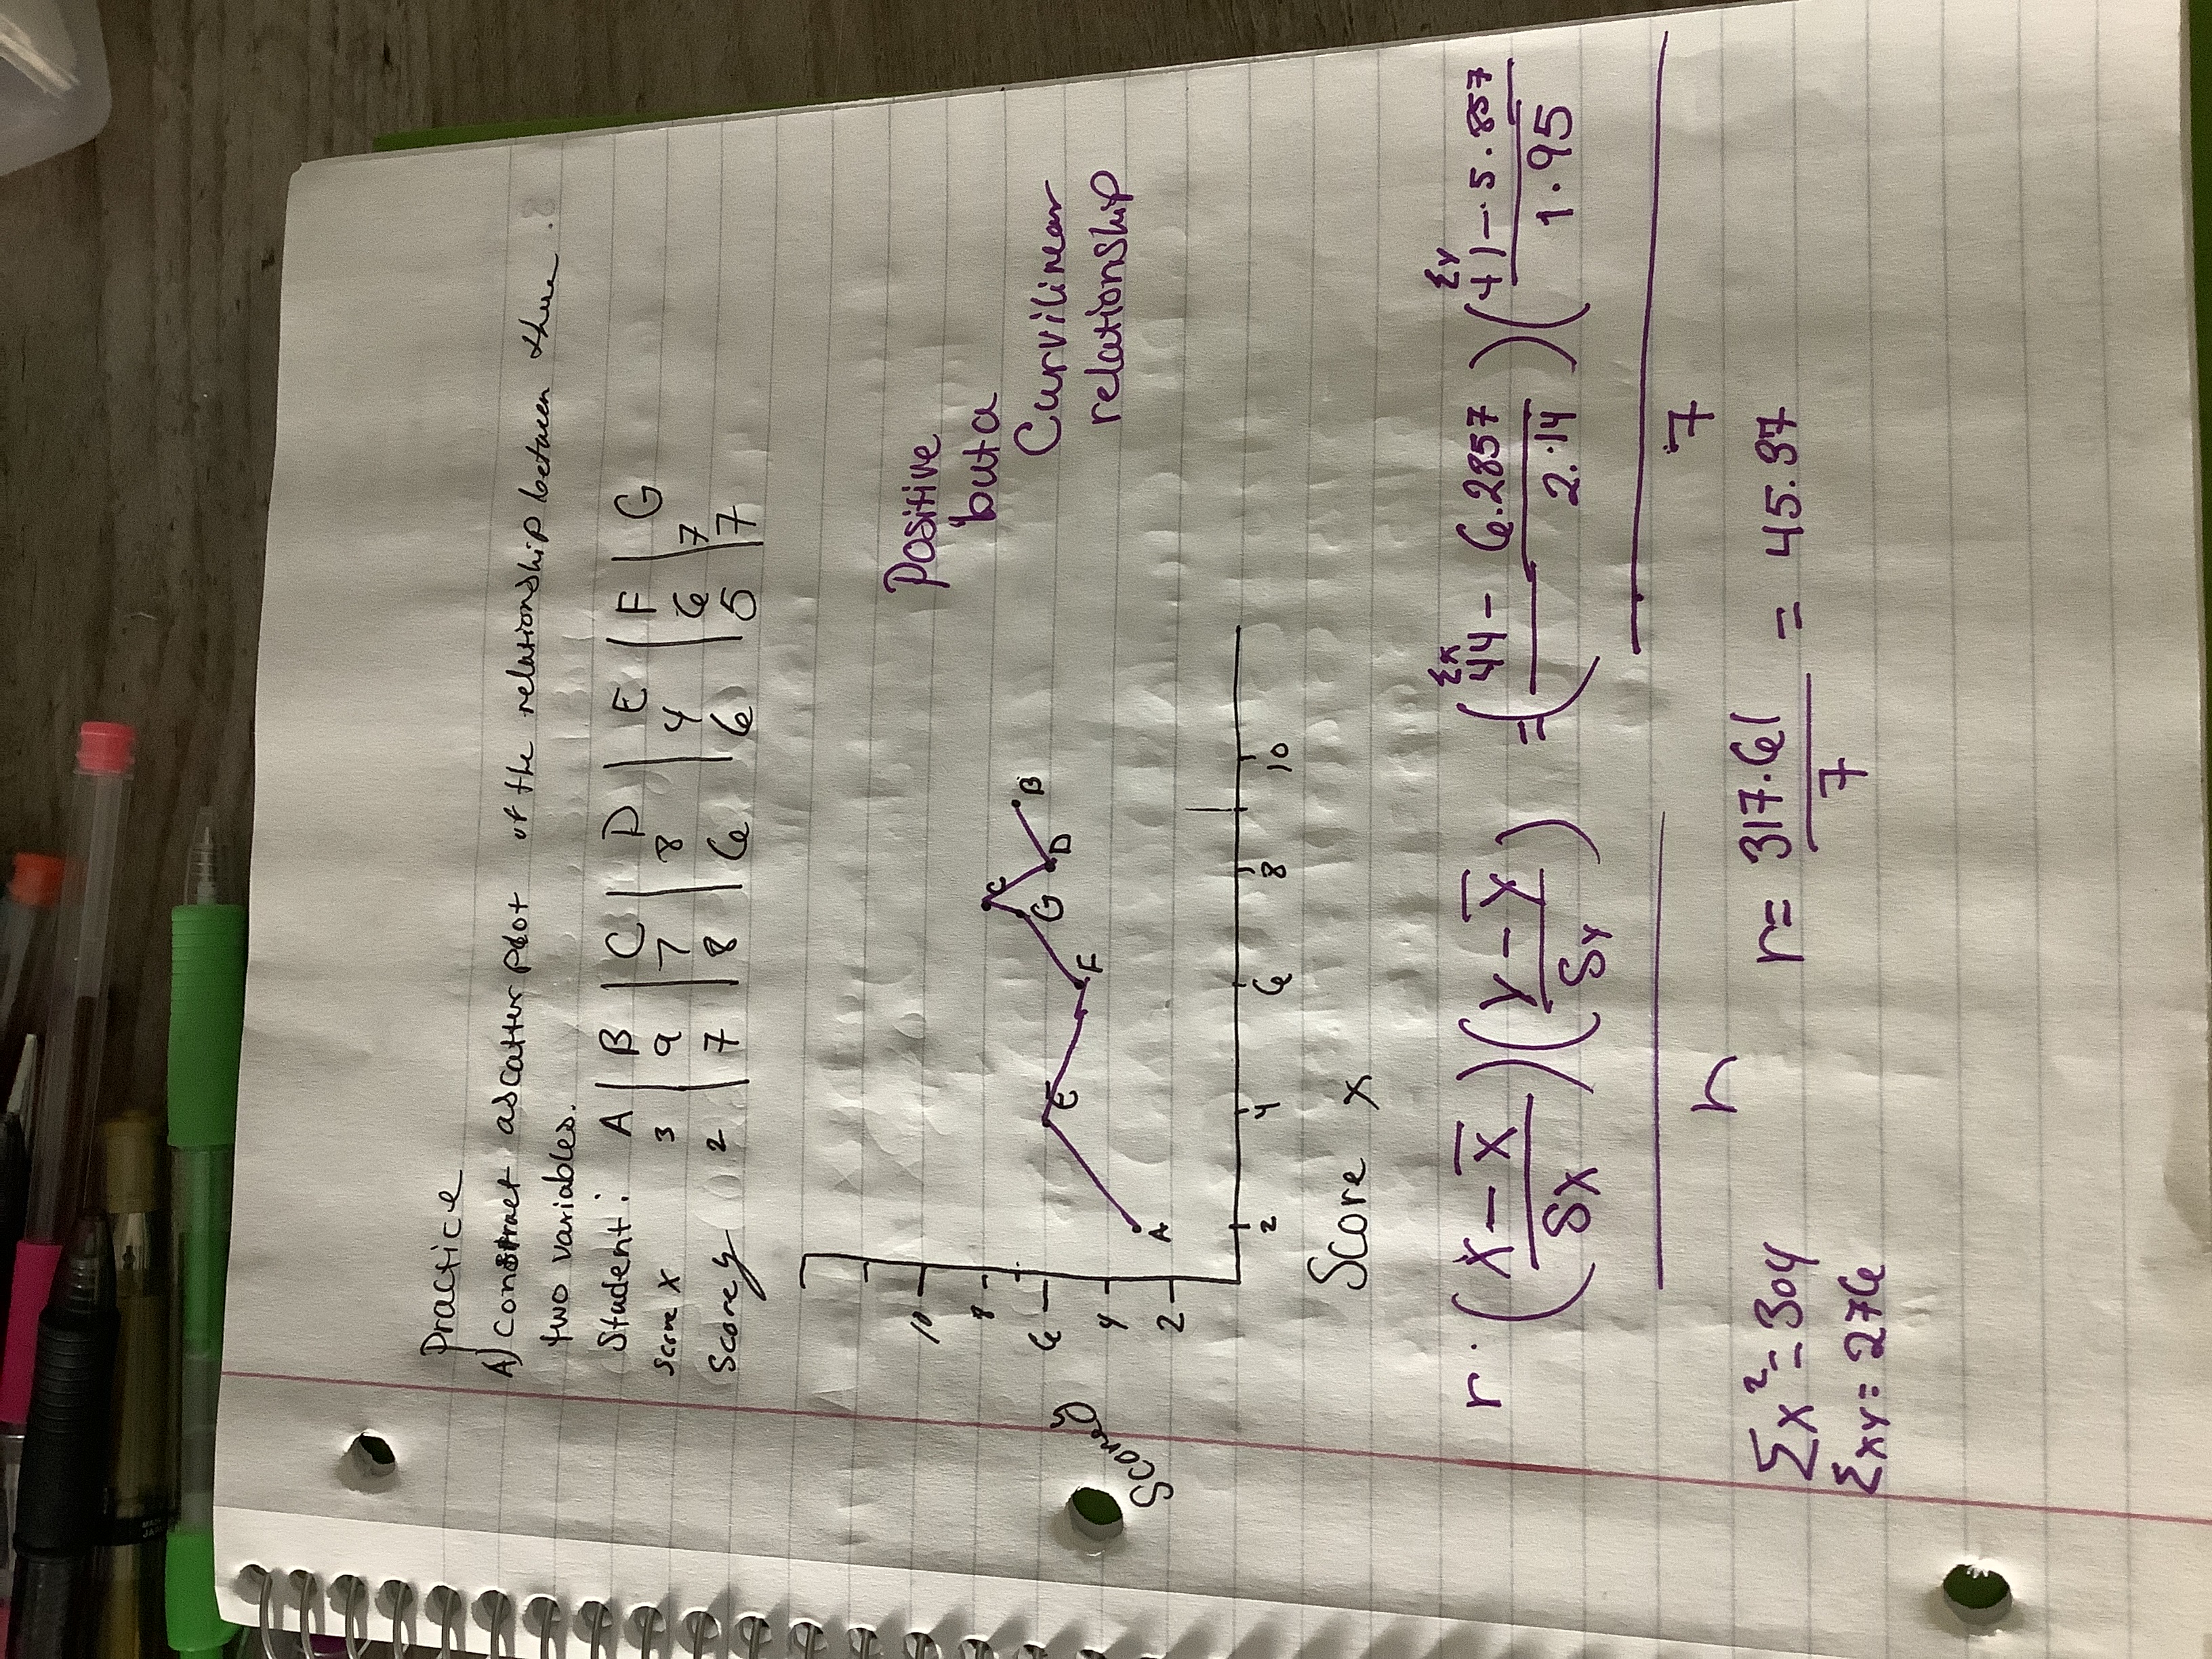 Practice
A) Construct a scatter plot of the relationship between these
two variables.
Student: A B C D E F G
Score X 3 9 7 8 4 6 7
Score y 2 7 8 6 6 5 7
10
8
6
4
2
Score y
A E F G C D B
2 4 6 8 10
Score x
Positive
but a
Curvilinear
relationship
r · (X - X̅ / Sx)(y - y̅ / Sy) / n = (Σx 44 - 6.2857 / 2.14)(Σy 41 - 5.857 / 1.95) / 7
Σx² = 304
Σxy = 276
r = 317.61 / 7 = 45.37